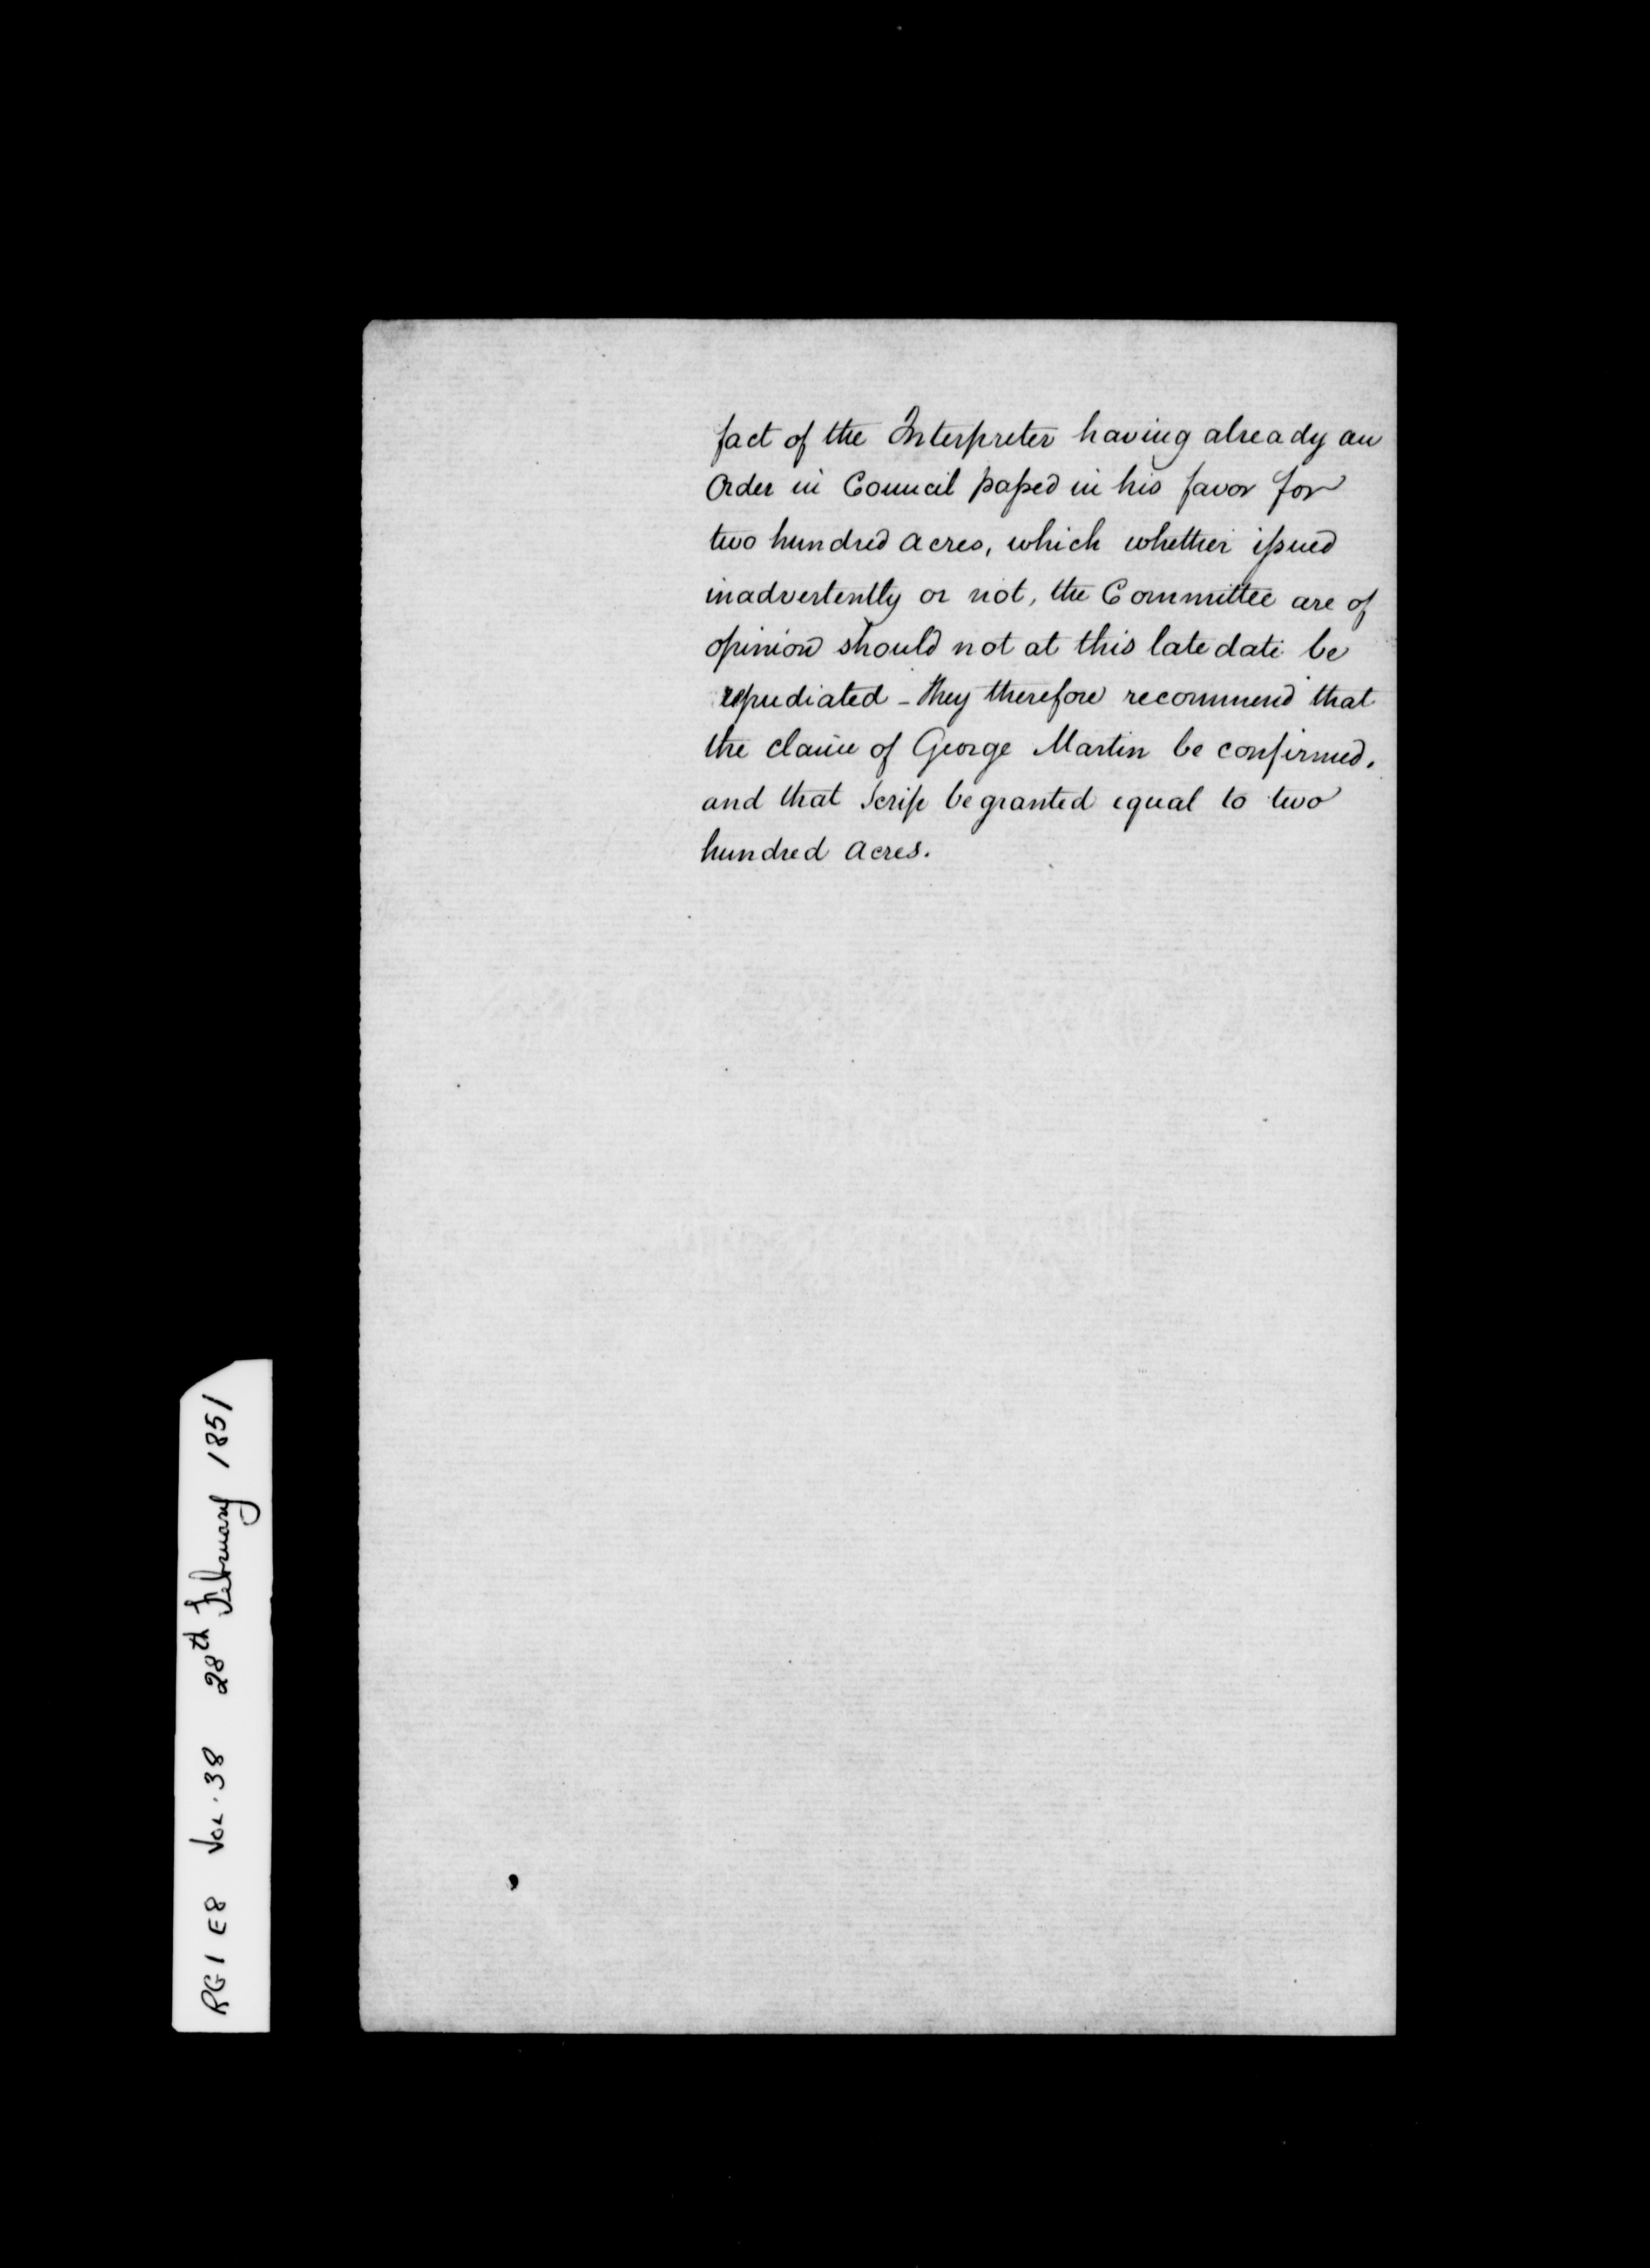 fact of the Interpreter having already an
Order in Council passed in his favor for
two hundred acres, which whether issued
inadvertently or not, the Committee are of
opinion should not at this late date be
repudiated - they therefore recommend that
the claim of George Martin be confirmed.
and that Scrip be granted equal to two
hundred acres.
RG1 E8 VOL. 38 28th February 1851